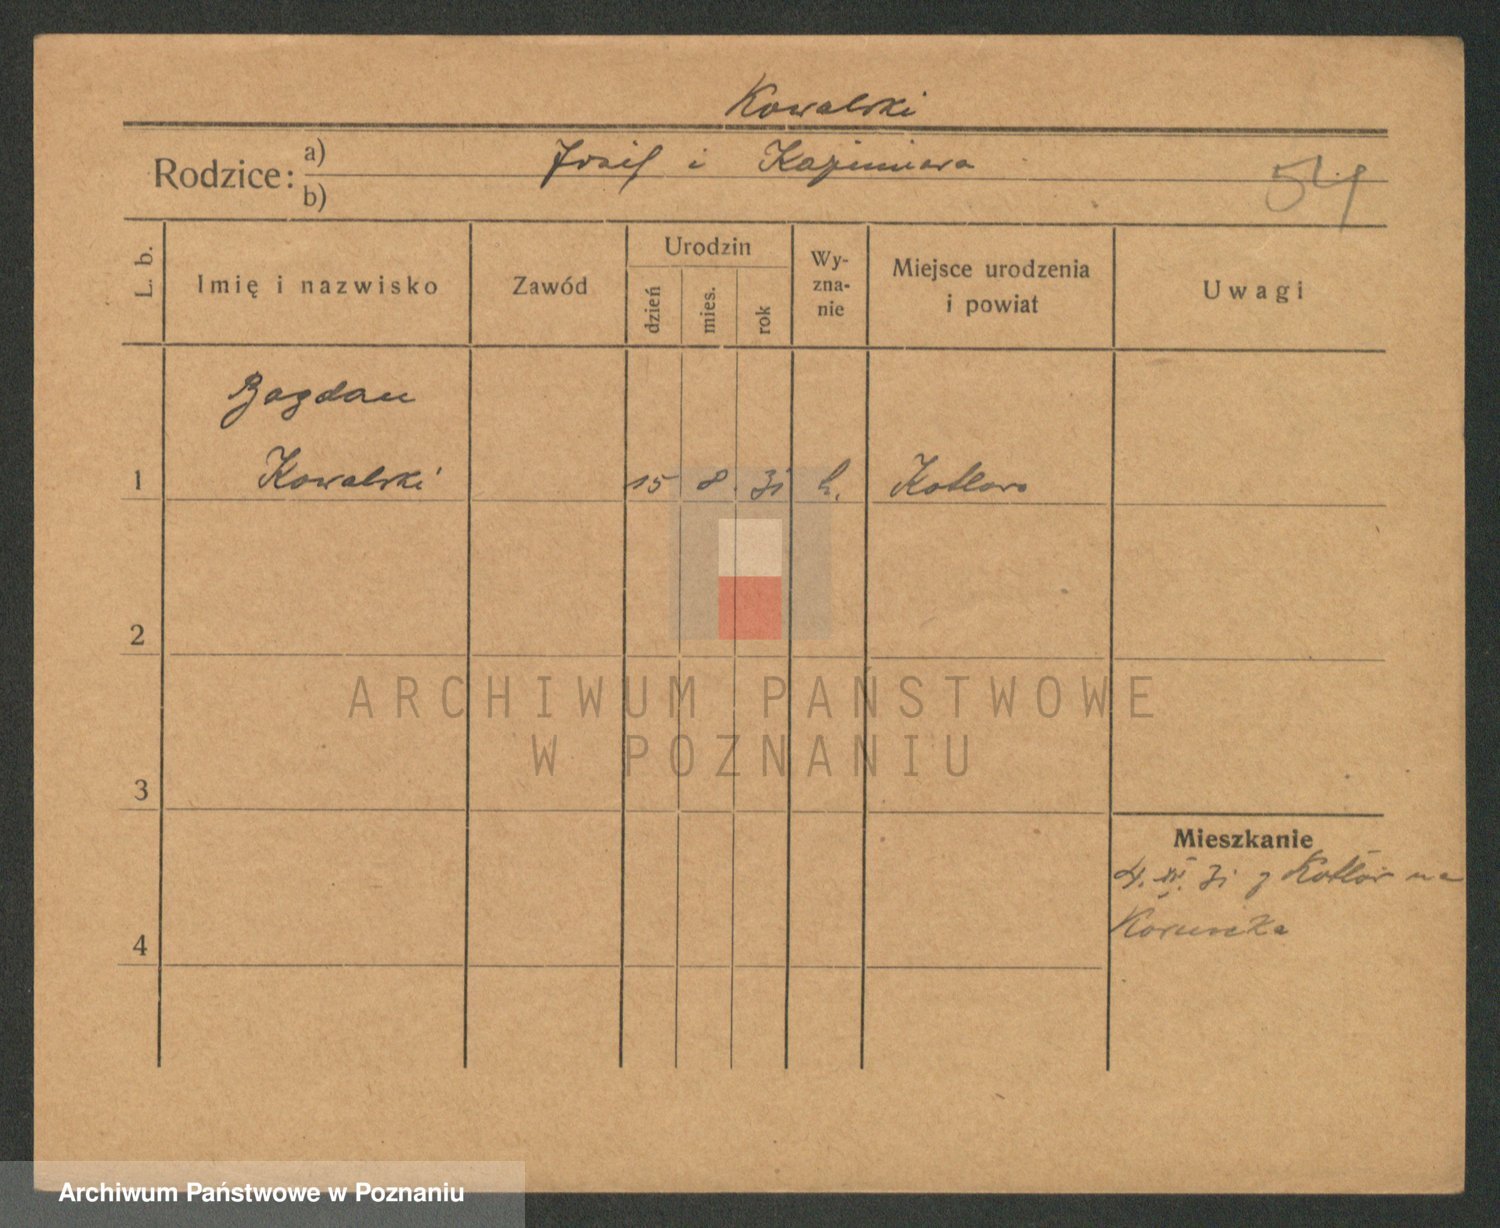 Kowalski
Rodzice: a) Józef i Kazimiera
b)
54
L. b.
Imię i nazwisko
Zawód
Urodzin
dzień
mies.
rok
Wy-
zna-
nie
Miejsce urodzenia
i powiat
Uwagi
Bogdan
1 Kowalski 15 8. 31 k.
2
3
4
Mieszkanie
31 z na
ARCHIWUM PAŃSTWOWE
W POZNANIU
Archiwum Państwowe w Poznaniu